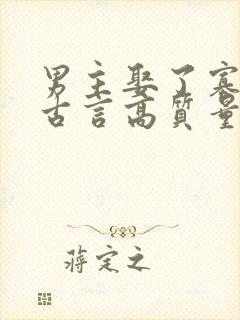 男主娶了寡
古言高質量
蔣定之